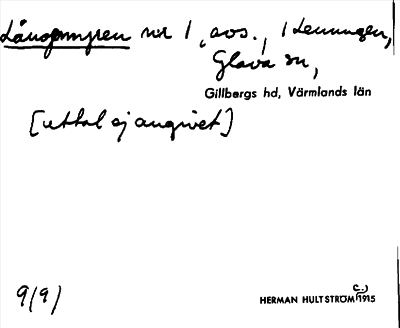 Långpmyren nr 1, avs., i Lenungen,
Glava sn,
Gillbergs hd, Värmlands län
[uttal ej angivet]
9/9/
HERMAN HULTSTRÖM (c.) 1915